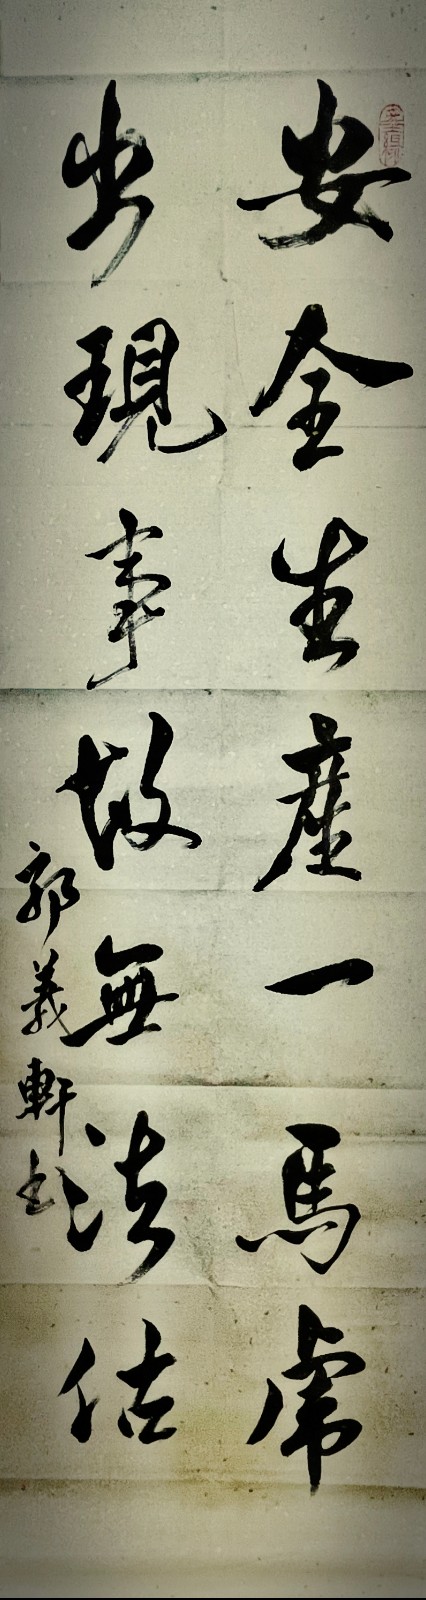 安全生產一馬虎
出現事故無法估
郭義軒书